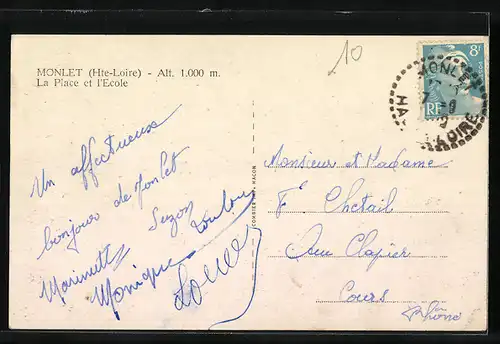 10
MONLET (Hte-Loire) - Alt. 1.000 m.
La Place et l'Ecole
8F
RF
MONLET
LOIRE
Un affectueux
bonjour de Monlet
Suzon Loulou
Marinette
Monique
Monsieur et Madame
F Chetail
Au Clapier
Cours
Rhône